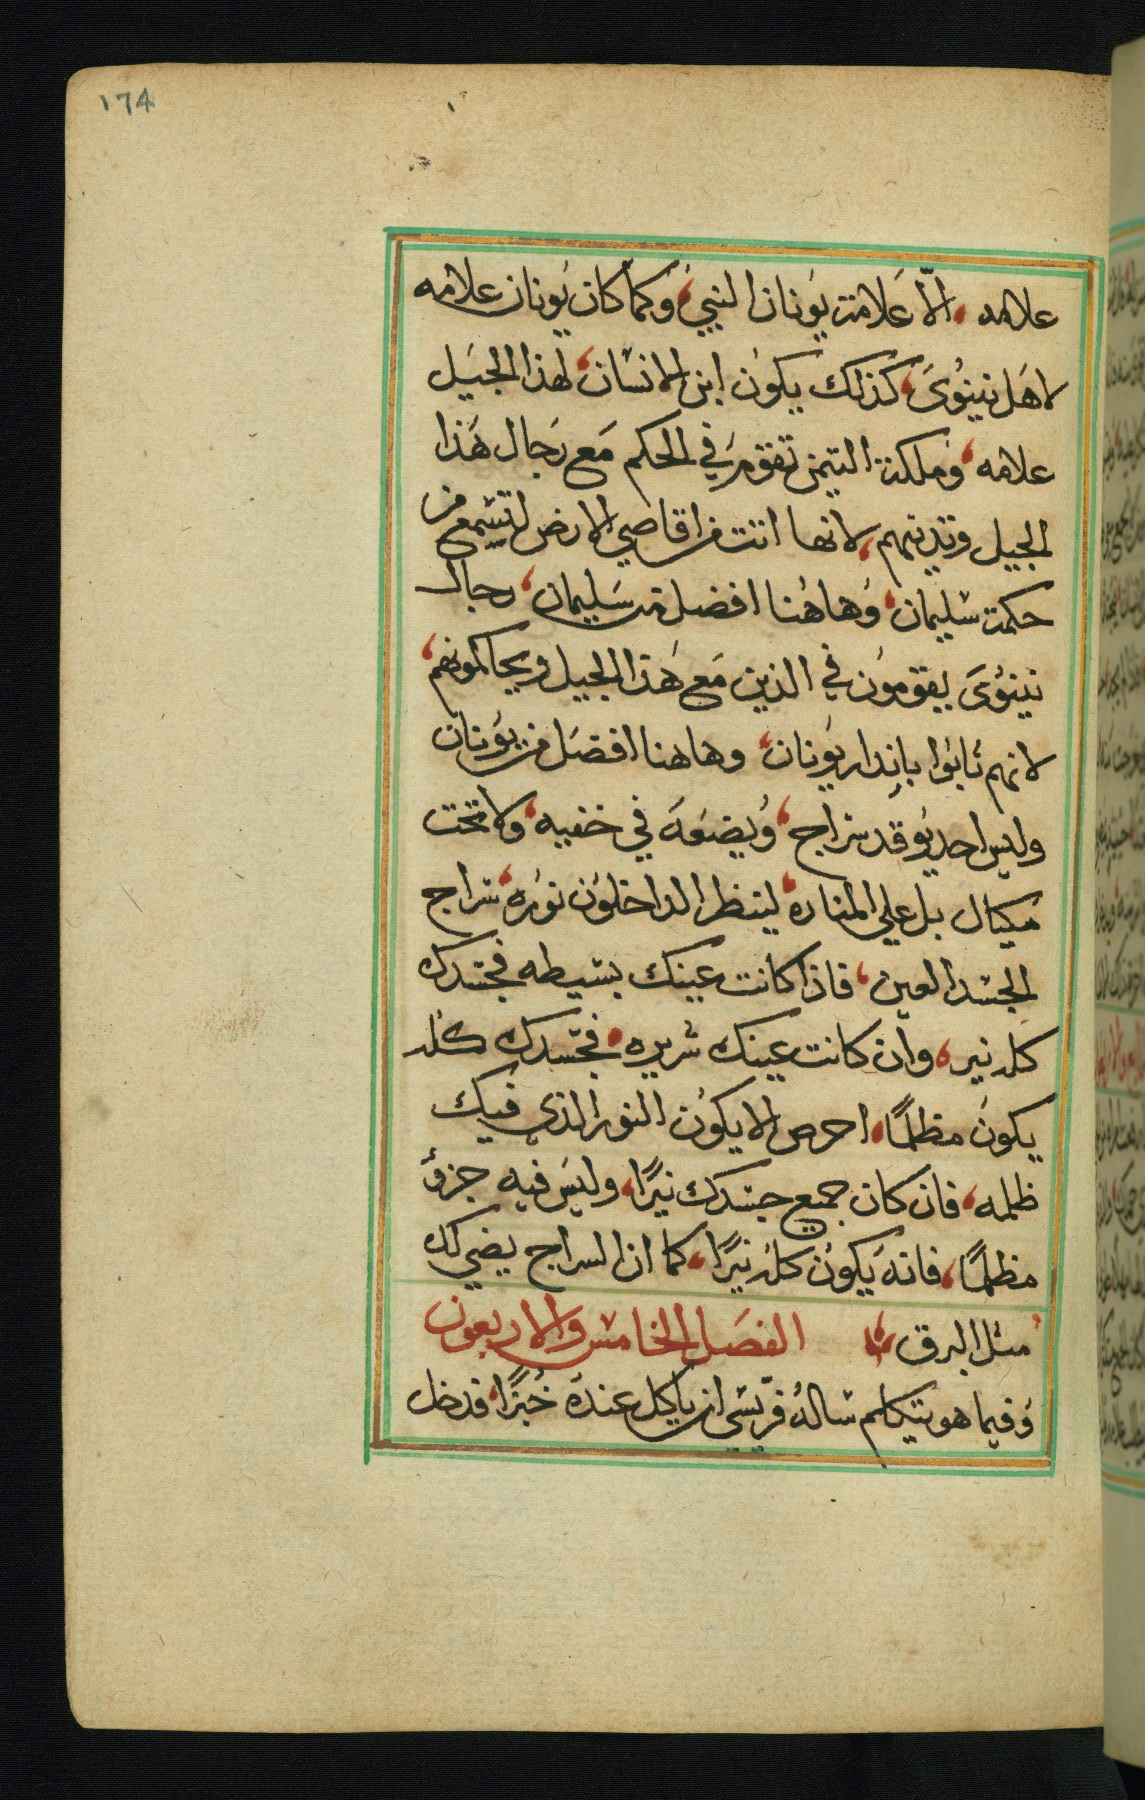 ١٦٤
علامه، الّا عَلامَة يوُنان النبيَ، وَكما كان يوُنان علامه
لاهَل نينوُىَ، كذلك يكوُن ابن الانسَان، لهذا الجيَل
علامه، وَملكة التيمن تقوم في الحكم مَع رجال هَذا
الجيل وتدينهم، لانها اتت من اقاصي الارض لتسَمع من
حكمة سَليمان، وُهاهُنا افضل من سَليمان، رجال
نينوُىَ يقومُون في الدين مَع هَذا الجيل ويحاكمونهم،
لانهم تابوُا باندار يوُنان، وهاهنا افضَل من يوُنان
وليس احد يوُقد سراج، وُيضعَهَ في خفيه، ولا تحت
مكيال بل علي المناره، لينظر الداخلوُن نوُره، سراج
الجسَد العين، فاذا كانت عينك بسَيطه فجسَدك
كله نير، وان كانت عينك شريره، فجسَدك كله
يكون مظلمًا، احرص الا يكوُن النور الذي فيك
ظلمه، فان كان جميع جسَدك نيرًا، وليسَ فيه جزوُ
مظلمًا، فانهَ يكوُن كله نيرًا، كما ان السراج يضي لك
مثل البرق، الفصَل الخامسَ والاربعون
وُفيما هو يتكلم سَالهُ فرّيسَي ان ياكل عندهَ خُبزًا، فدخل